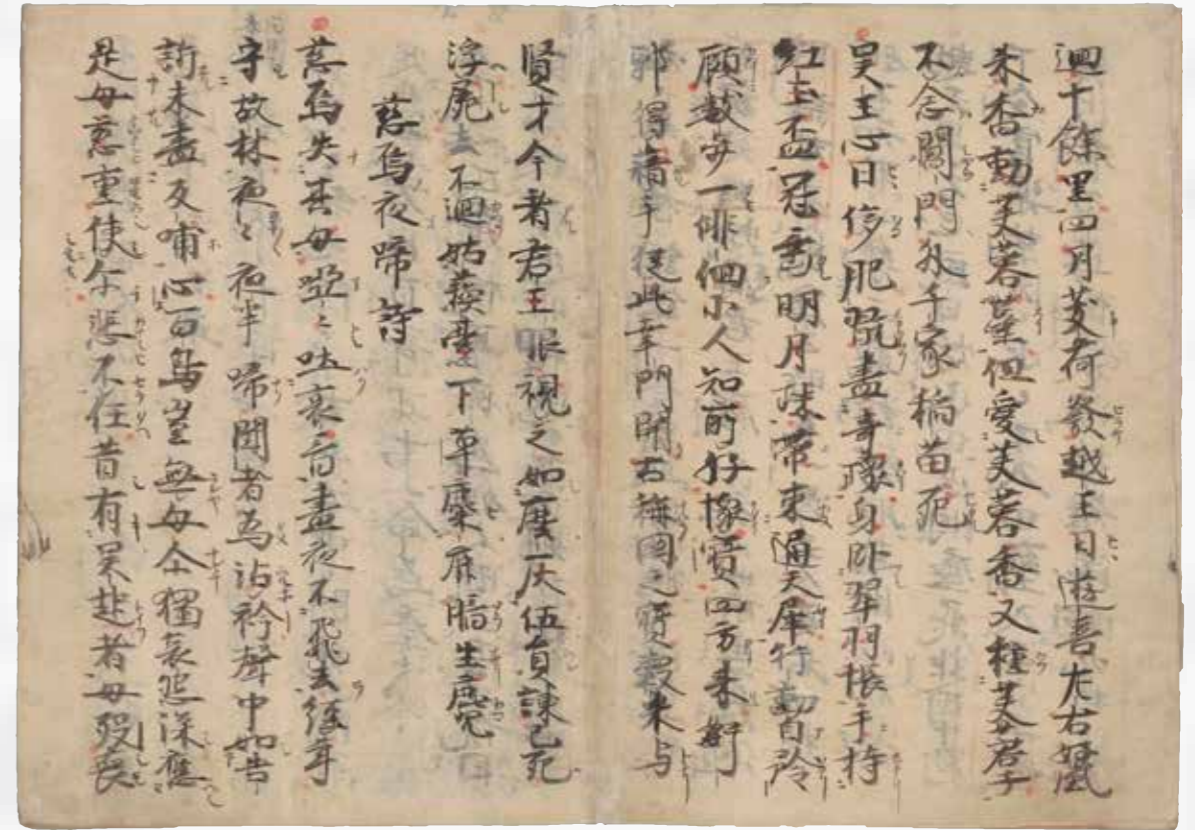 迴十餘里四月芰荷發越王日遊喜左右好風
来香動芙蓉蘂但愛芙蓉香又種芙蓉子
不念閶門外千家稲苗死
吴王心日侈服翫盡奇瓌身卧翠羽帳手持
紅玉盃冠垂明月珠帯束通天犀行動自矜
顧數歩一俳佪小人知所好懐寳四方来奸
邪得藉手従此幸門開古称國之寳穀米与
賢才今者君王眼視之如塵灰伍員諌已死
浮屍去不迴姑蘇臺下草麋鹿暗生麑
慈烏夜啼詩
慈烏失其母啞〻吐哀音晝夜不飛去経年
守故林夜〻夜半啼聞者為沾衿聲中如告
訴未盡反哺心百鳥豈無母尒獨哀怨深應
是母慈重使尒悲不任昔有吴起者母歿喪